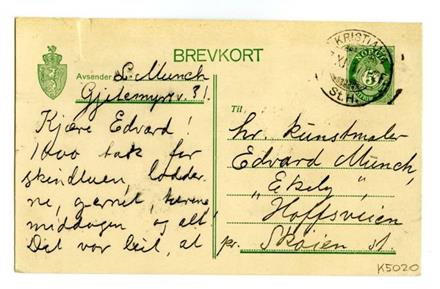 BREVKORT
KRISTIANIA
NORGE
5
St.H.
Avsender: L. Munch
Gjetemyrsv. 31.
Til
Kjære Edvard!
1000 tak for
skindluen, lodder
ne, og
middagen og alt!
Det var leit, at
hr. kunstmaler
Edvard Munch,
"Ekely"
Hoffsveien
pr. Skøien st.
K5020